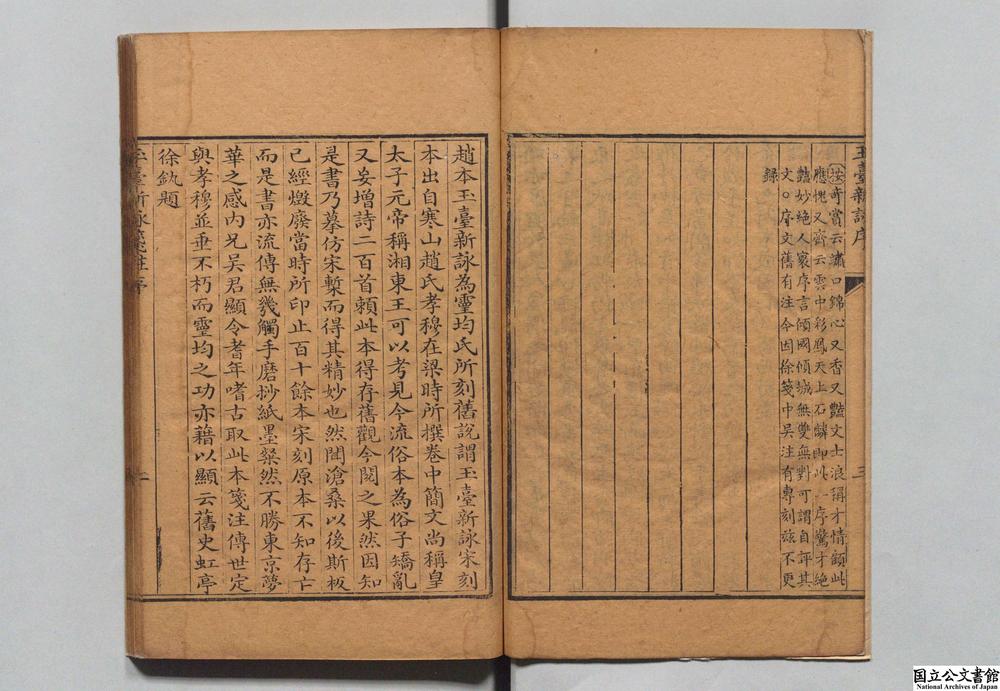 玉臺新詠序
〔按〕奇賞云繡口錦心又香又豔文士浪稱才情顧此
應愧又齊云雲中彩鳳天上石麟即此一序驚才絕
豔妙絕人寰序言傾國傾城無雙無對可謂自評其
文○序文舊有注今因徐箋中吳注有專刻茲不更
錄
三
趙本玉臺新詠為靈均氏所刻舊說謂玉臺新詠宋刻
本出自寒山趙氏孝穆在梁時所撰卷中簡文尚稱皇
太子元帝稱湘東王可以考見今流俗本為俗子矯亂
又妄增詩二百首賴此本得存舊觀今閱之果然因知
是書乃摹仿宋槧而得其精妙也然閱滄桑以後斯板
已經燬廢當時所印止百十餘本宋刻原本不知存亡
而是書亦流傳無幾觸手磨挱紙墨粲然不勝東京夢
華之感內兄吳君顯令耆年嗜古取此本箋注傳世定
與孝穆並垂不朽而靈均之功亦藉以顯云舊史虹亭
徐釚題
玉臺新詠箋註序
二
国立公文書館
National Archives of Japan